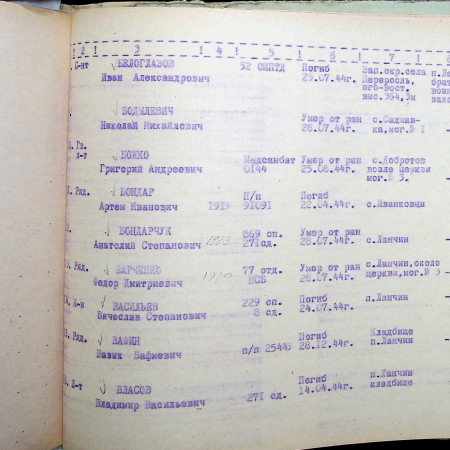 2 3 4 5 6 7
С-нт БЕЛОГЛАЗОВ 52 ОИПТД Погиб Зап.окр.села
Иван Александрович 25.07.44г. Переросль,
юго-Вост.
выс.364,3м
БОДЫЛЕВИЧ Умер от ран с.Садзав-
Николай Михайлович 28.07.44г. ка,мог.№ 1
Гв.
л-т БОЖКО Медсанбат Умер от ран с.Добротов
Григорий Андреевич 0144 25.08.44г. возле церкви
мог.№ 3.
Ряд. БОНДАР П/п Погиб
Артем Иванович 1919 91091 22.04.44г. с.Иванковцы
БОНДАРЧУК 869 сп. Умер от ран
Анатолий Степанович 1923 271сд. 28.07.44г. с.Ланчин
Ряд. ВАРЧЕНКО 77 отд. Умер от ран с.Ланчин,около
Федор Дмитриевич 1920 28.07.44г. церкви,мог.№ 3
ВАСИЛЬЕВ 229 сп. Погиб п.Ланчин
Вячеслав Степанович 8 сд. 24.07.44г.
Ряд. ВАФИН Погиб Кладбище
Вазых Вафиевич п/п 25440 28.12.44г. п.Ланчин
Л-т ВЛАСОВ Погиб п.Ланчин
Владимир Васильевич 271 сд. 14.04.44г. кладбище